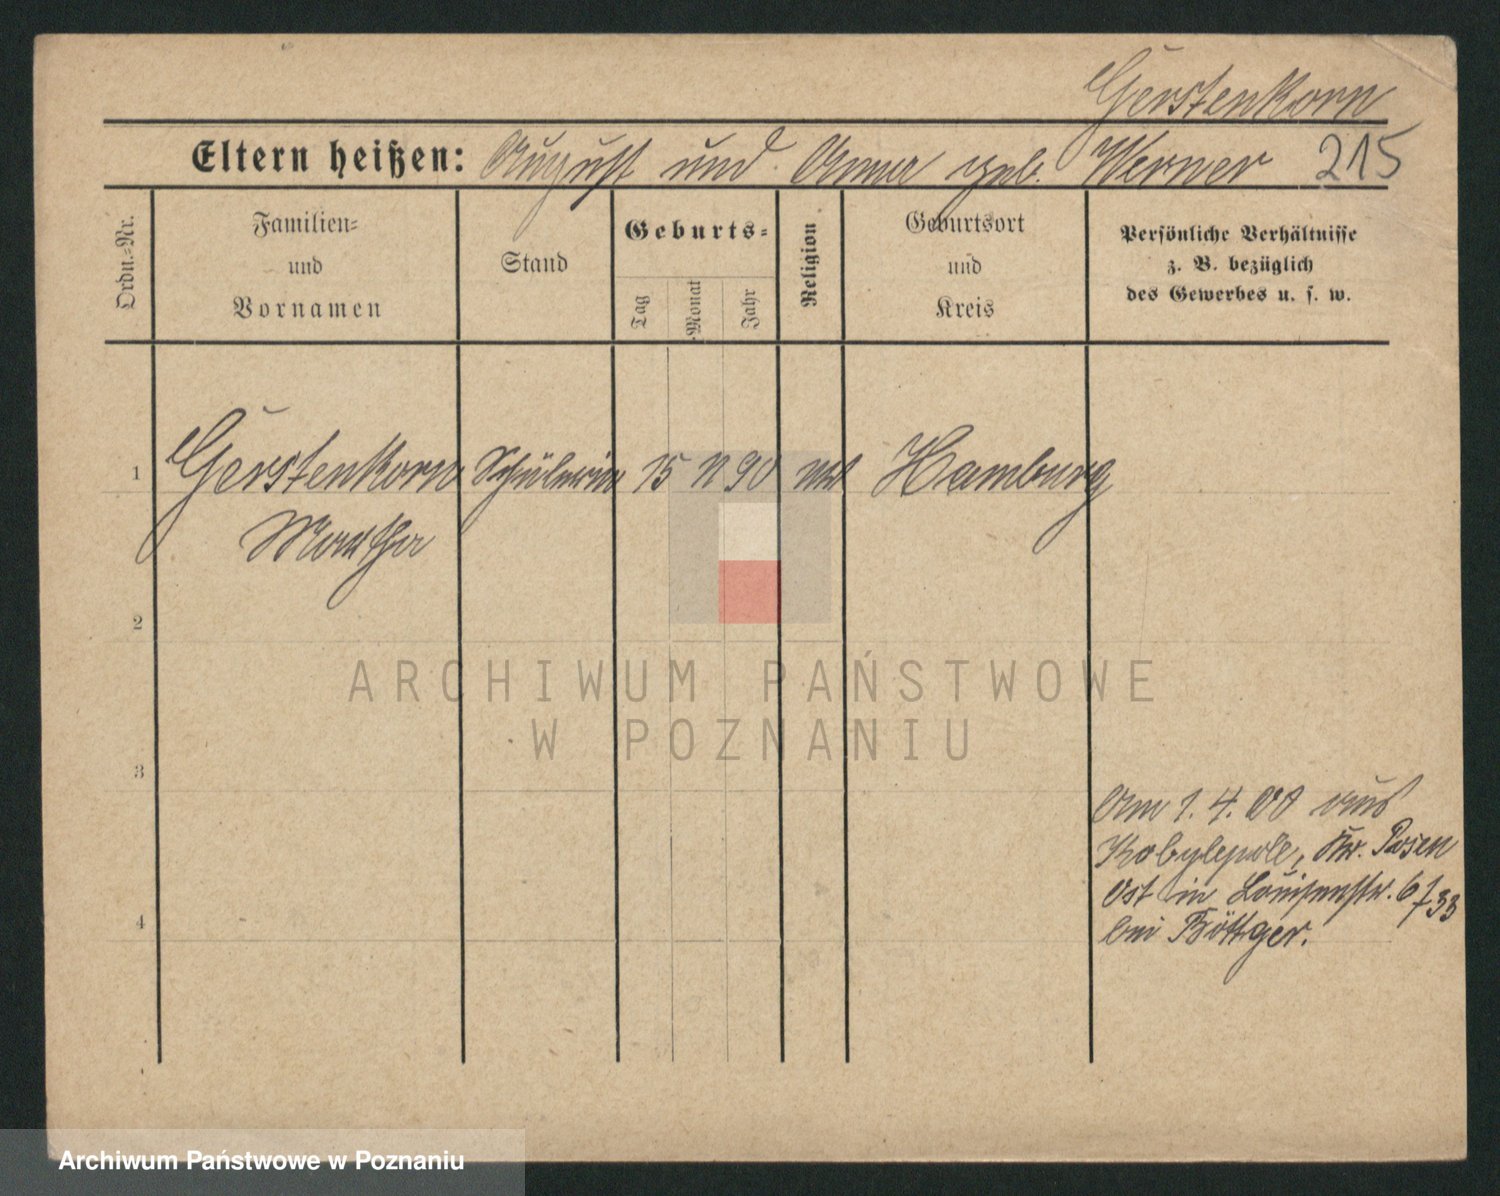 Gerstenkorn
Eltern heißen: August und Anna geb. Werner 215
Ordn.=Nr.
Familien=
und
Vornamen
Stand
Geburts=
Tag
Monat
Jahr
Religion
Geburtsort
und
Kreis
Persönliche Verhältnisse
z. B. bezüglich
des Gewerbes u. s. w.
1 Gerstenkorn Schülerin 15 90 Hamburg
Martha
2
3
4
Am 1. 4. 00 aus
Kobylepole, Kr. Posen
Ost in Louisenstr. 6
bei Böttger.
ARCHIWUM PAŃSTWOWE
W POZNANIU
Archiwum Państwowe w Poznaniu